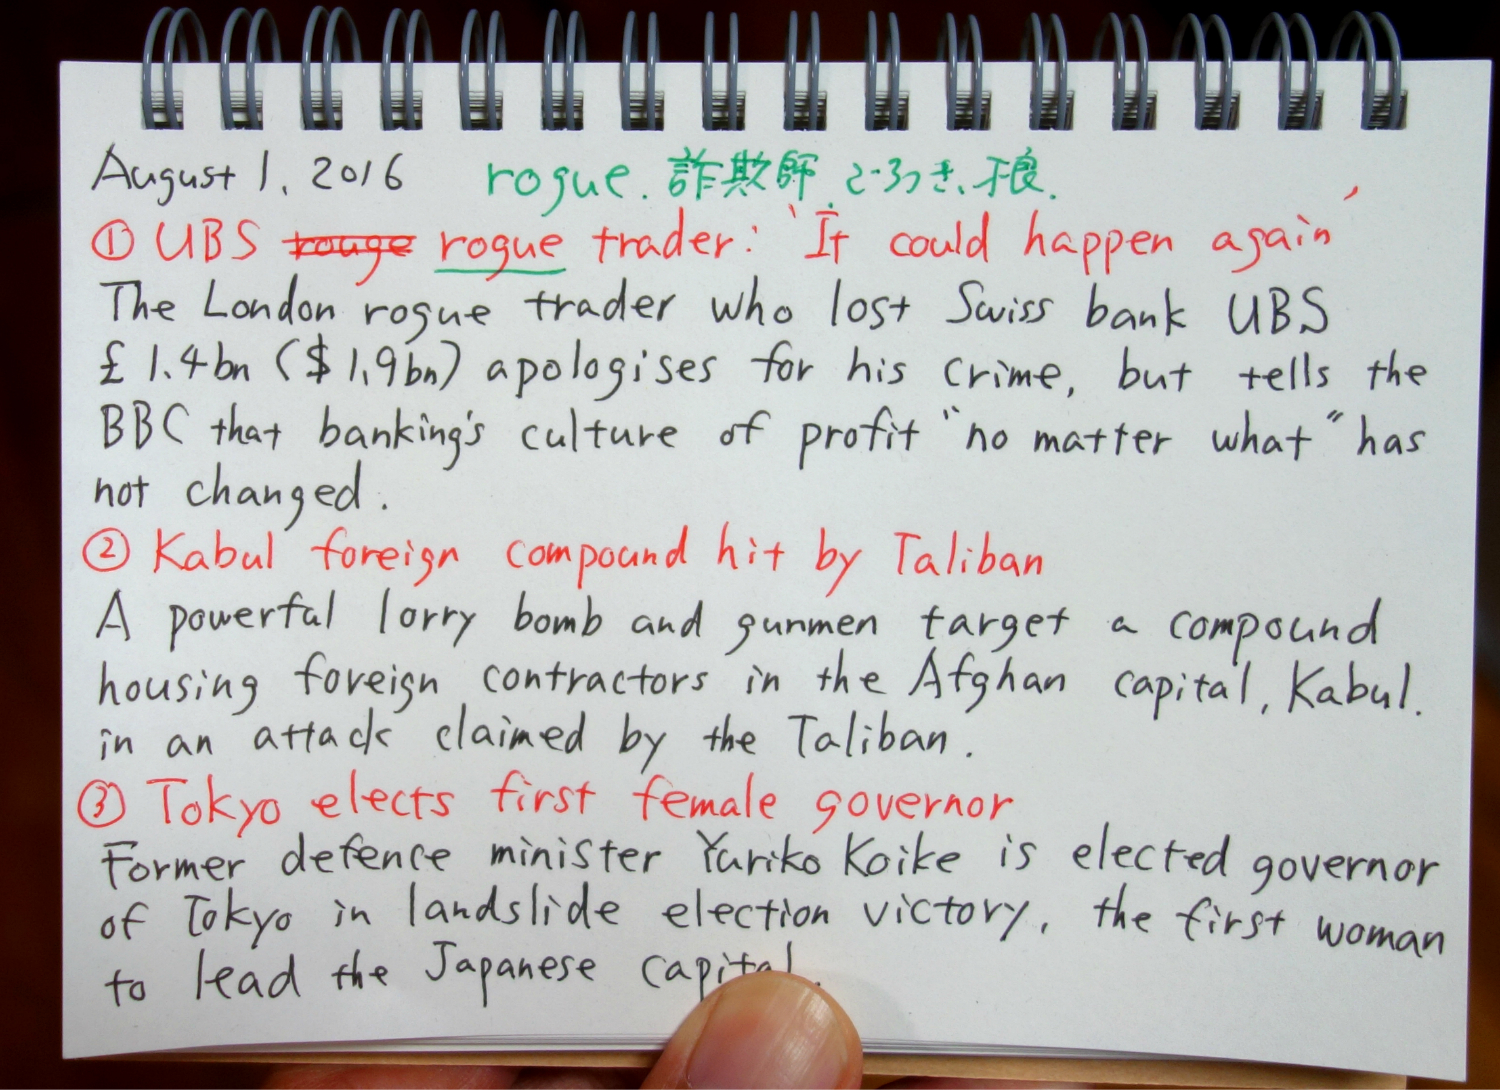 August 1, 2016 rogue. 詐欺師, ごろつき、狼.
① UBS rouge rogue trader: 'It could happen again'
The London rogue trader who lost Swiss bank UBS
£1.4bn ($1.9bn) apologises for his crime, but tells the
BBC that banking's culture of profit "no matter what" has
not changed.
② Kabul foreign compound hit by Taliban
A powerful lorry bomb and gunmen target a compound
housing foreign contractors in the Afghan capital, Kabul.
in an attack claimed by the Taliban.
③ Tokyo elects first female governor
Former defence minister Yuriko Koike is elected governor
of Tokyo in landslide election victory, the first woman
to lead the Japanese capital.